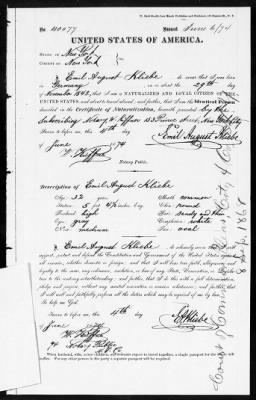 No. 40077 Issued June 6/74
UNITED STATES OF AMERICA.
STATE OF New York
COUNTY OF New York
I, Emil August Kliebe do swear that I was born
in Germany on or about the 29th day
of November 1842, that I am a NATURALIZED AND LOYAL CITIZEN OF THE
UNITED STATES, and about to travel abroad; and further, that I am the Identical Person
described in the Certificate of Naturalization, herewith presented by the
Subscribing Notary 153 Street, New York City
Sworn to before me, this 4th day
of June 74
Emil August Kliebe
Notary Public.
Description of Emil August Kliebe
Age: 32 years Mouth: common
Stature: 5 feet inches, Eng. Chin: round
Forehead: high Hair: sandy and thin
Eyes: gray Complexion: white
Nose: medium Face: oval
I, Emil August Kliebe do solemnly swear that I will
support, protect and defend the Constitution and Government of the United States against
all enemies, whether domestic or foreign; and that I will bear true faith, allegiance and
loyalty to the same, any ordinance, resolution or law of any State, Convention or Legislature
to the contrary notwithstanding; and further, that I do this with a full determination,
pledge and purpose, without any mental reservation or evasion whatsoever; and further, that
I will well and faithfully perform all the duties which may be required of me by law.
So help me God.
Sworn to before me, this 4th day
of June
74
EAKliebe
Notary Public
N.Y. Co.
When husband, wife, minor children, and servants expect to travel together, a single passport for the whole will
suffice. For any other person in the party a separate passport will be required.
Court of Common Pleas